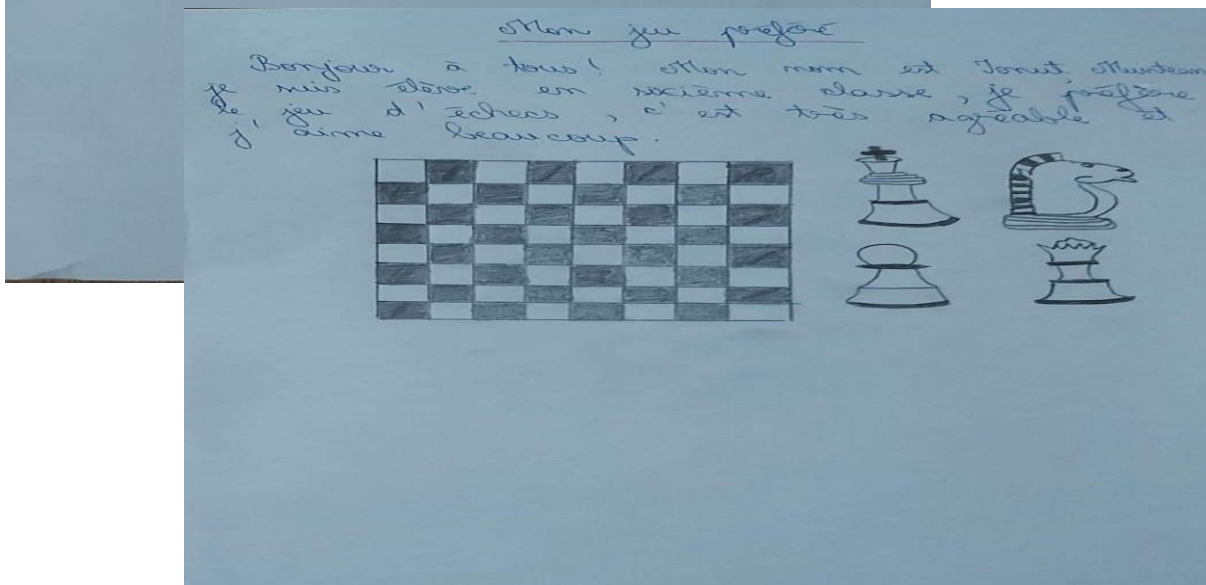 Mon jeu préféré
Bonjour à tous! Mon nom est Ionuț Muntean
je suis élève en sixième classe, je préfère
le jeu d'échecs, c'est très agréable et
j'aime beaucoup.